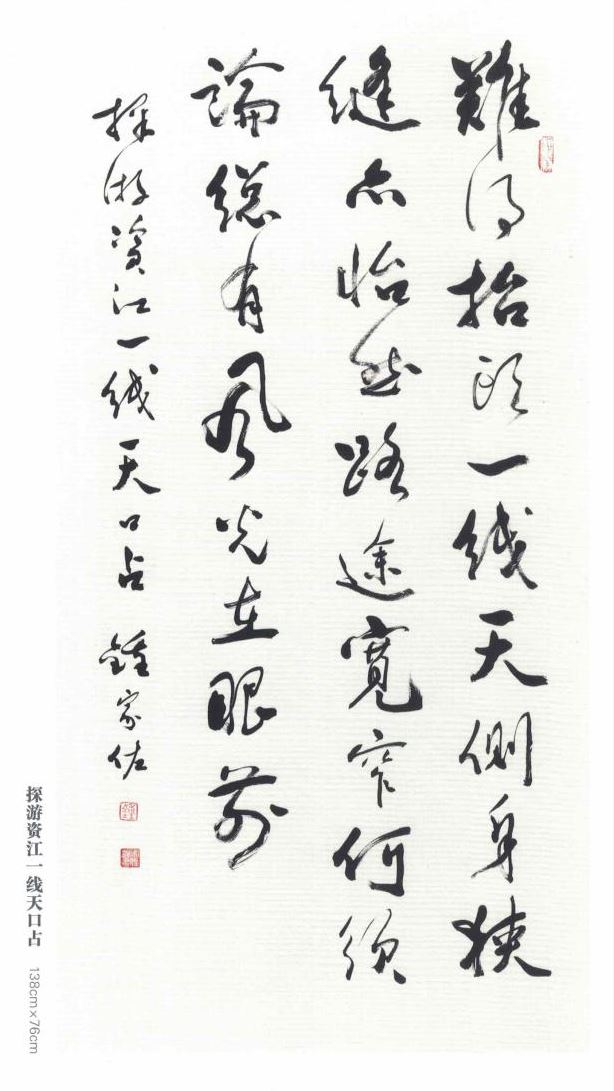 難得抬頭一线天側身狹
縫亦怡然路途寬窄何须
論總有風光在眼前
探游資江一线天口占 鍾家佐
探游资江一线天口占 138cm×76cm